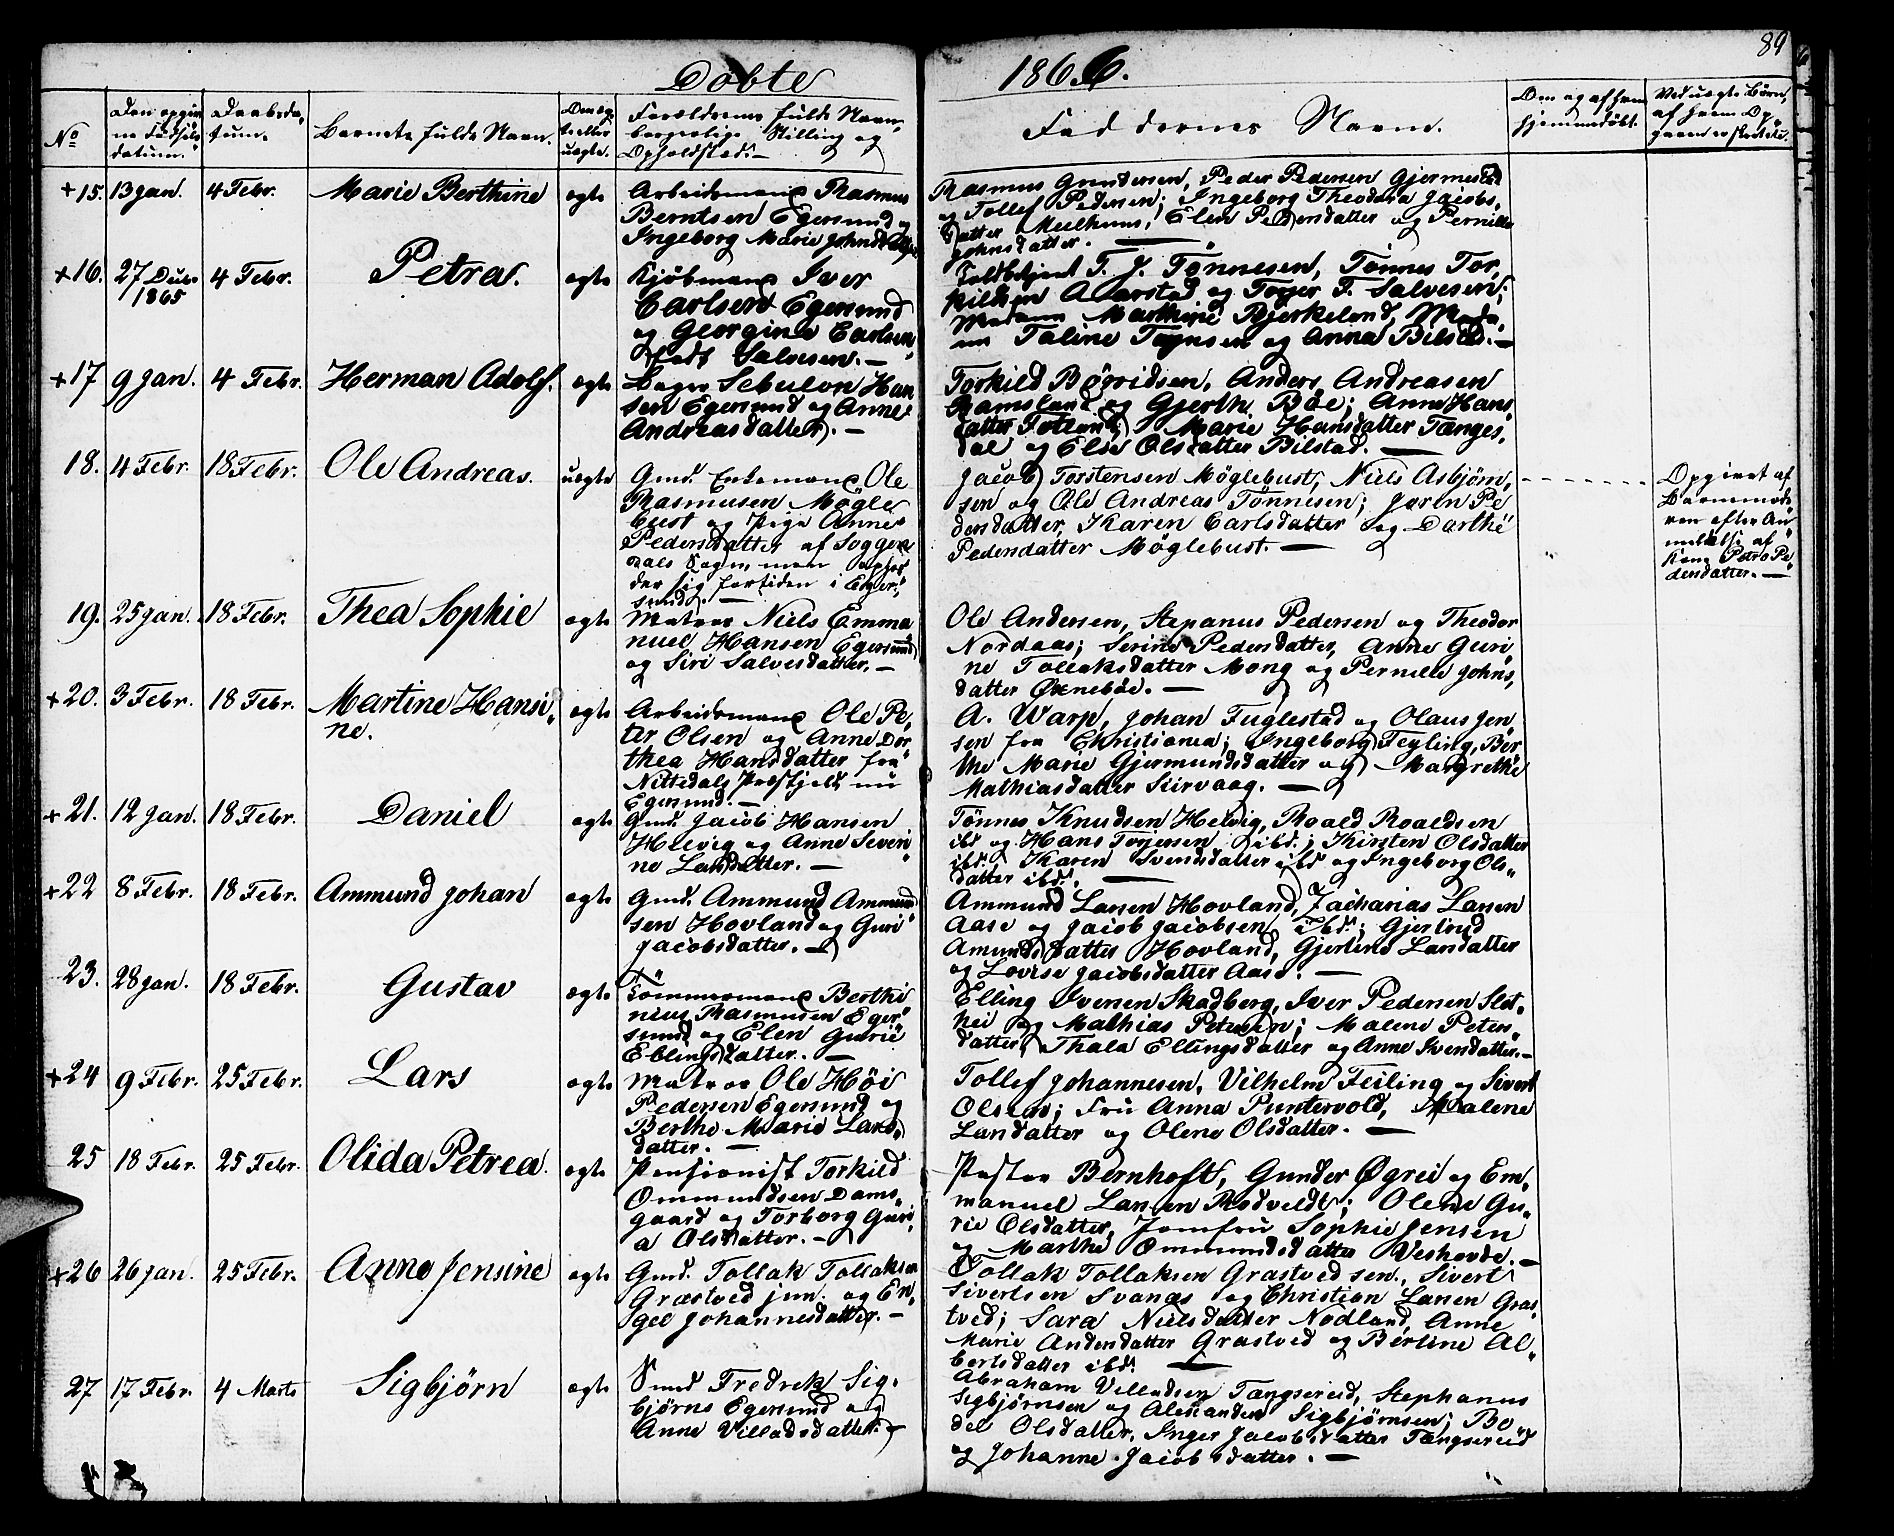 Døbte
1866.
89
No
Den opgivne Fødselsdatum.
Daabsdatum.
Barnets fulde Navn.
Om ægte eller uægte.
Forældrenes fulde Navn, borgerlige Stilling og Opholdsted.
Faddernes Navne.
Om og af hvem hjemmedøbt.
Ved uægte Børn, af hvem Opgaven er skeet etc.
+15. 13 Jan. 4 Febr. Marie Berthine ægte
Arbeidsmand Rasmus
Berntsen Egersund og
Ingeborg Marie Johnsdatter
Rasmus Gundersen, Peder Pedersen Gjermestad
og Tollef Pedersen; Ingeborg Theodora Jacobs,
datter Meelhuus, Elen Pedersdatter og Pernille
Johnsdatter. —
+16. 27 Decbr 1865 4 Febr. Petra. ægte
Kjøbmand Iver
Carlsen Egersund
og Georgine Carlsen
født Salvesen. —
Toldbetjent T. J. Tönnesen, Tönnes Tor,
kildsen Aarstad og Torjer T. Salvesen;
Madam Marthine Bjerkeland, Mada,
m Taline Tognsen og Anna Bilstad. —
+17 9 Jan. 4 Febr. Herman Adolf. ægte
Bager Sebulon Han
sen Egersund og Anne
Andreasdatter. —
Torkild Börildsen, Anders Andreasen
Ramsland og Gjerth Böe; Anne Hans,
datter Fotland, Marie Hansdatter Tænges,
dal og Else Olsdatter Bilstad. —
18. 4 Febr. 18 Febr. Ole Andreas. uægte
Gmd. Enkemand Ole
Rasmusen Mögle
bust og Pige Anne
Pedersdatter af Soggen
dals Sogn, men ophol
der sig fortiden i Eger,
sund. —
Jacob Torstensen Möglebust, Niels Asbjörn,
sen og Ole Andreas Tönnesen; Joren Pe
dersdatter, Karen Carlsdatter og Dorthe
Pedersdatter Möglebust. —
Opgivet af
Barnemode
ren efter An
meldelse af
Kone Petra Pe
dersdatter. —
19. 25 Jan. 18 Febr. Thea Sophie ægte
Matros Niels Emma
nuel Hansen Egersund
og Siri Salvesdatter. —
Ole Andersen, Stepanus Pedersen og Theodor
Nordaas; Serine Pedersdatter, Anne Guri
ne Tollaksdatter Mong og Pernille Johns,
datter Öxneböe. —
+20. 3 Febr. 18 Febr. Martine Hansi,
ne. ægte
Arbeidsmand Ole Pe,
ter Olsen og Anne Dor
thea Hansdatter fra
Nittedals Præstgjeld nu
Egersund. —
A. Warp, Johan Fuglestad og Olaus Jen
sen fra Christiania; Ingeborg Feyling, Ber
the Marie Gjermundsdatter og Margrethe
Mathiasdatter Siirvaag. —
+21. 12 Jan. 18 Febr. Daniel ægte
Gmd. Jacob Hansen
Helvig og Anne Severi
ne Larsdatter. —
Tönnes Knudsen Helvig, Roald Roaldsen
ibd og Hans Torjersen ibd.; Kirsten Olsdatter
ibd., Karen Svendsdatter ibd og Ingeborg Ols,
datter ibd. —
+22 8 Febr. 18 Febr. Ammund Johan ægte
Gmd. Ammund Ammund
sen Hovland og Guri
Jacobsdatter. —
Ammund Larsen Hovland, Zacharias Larsen
Aase og Jacob Jacobsen ibd.; Gjertrud
Amundsdatter Hovland, Gjerline Larsdatter
og Lovise Jacobsdatter Aase. —
23. 28 Jan. 18 Febr. Gustav ægte
Tömmermand Berthi
nius Rasmusen Eger
sund og Elen Gurie
Ellingsdatter. —
Elling Iversen Skadberg, Iver Pedersen Slet
hei og Mathias Petersen; Malene Peters,
datter, Thala Ellingsdatter og Anne Iversdatter. —
+24 9 Febr. 25 Febr. Lars ægte
Matros Ole Höi
Pedersen Egersund og
Berthe Marie Lars,
datter. —
Tollef Johannesen, Vilhelm Feiling og Sivert
Olsen; Fru Anna Puntervold, Malene
Larsdatter og Olene Olsdatter. —
25 18 Febr. 25 Febr. Olida Petrea. ægte
Pensionist Torkild
Ommundsen Dams,
gaard og Torborg Guri,
a Olsdatter. —
Pastor Bernhoft, Gunder Øgrei og Em,
manuel Larsen Rodveldt; Olene Gu,
rie Olsdatter, Jomfru Sophie Jensen
og Marthe Ommundsdatter Veshovde. —
+26 26 Jan. 25 Febr. Anne Jensine ægte
Gmd. Tollak Tollaksen
Græstved jun. og En,
gel Johannesdatter. —
Tollak Tollaksen Grastved sen., Sivert
Sivertsen Svanæs og Christian Larsen Gras,
tved; Sara Nielsdatter Nodland, Anne
Marie Andersdatter Grastved og Berline Al,
bertsdatter ibd. —
27 17 Febr. 4 Marts Sigbjörn ægte
Smed Fredrek Sig,
björns Egersund og
Anne Villadsdatter. —
Abraham Villadsen Tængsereid, Stephanus
Sigbjörnsen og Alexander Sigbjörnsen; Bo
del Olsdatter, Inger Jacobsdatter Tængsereid
og Johanne Jacobsdatter. —